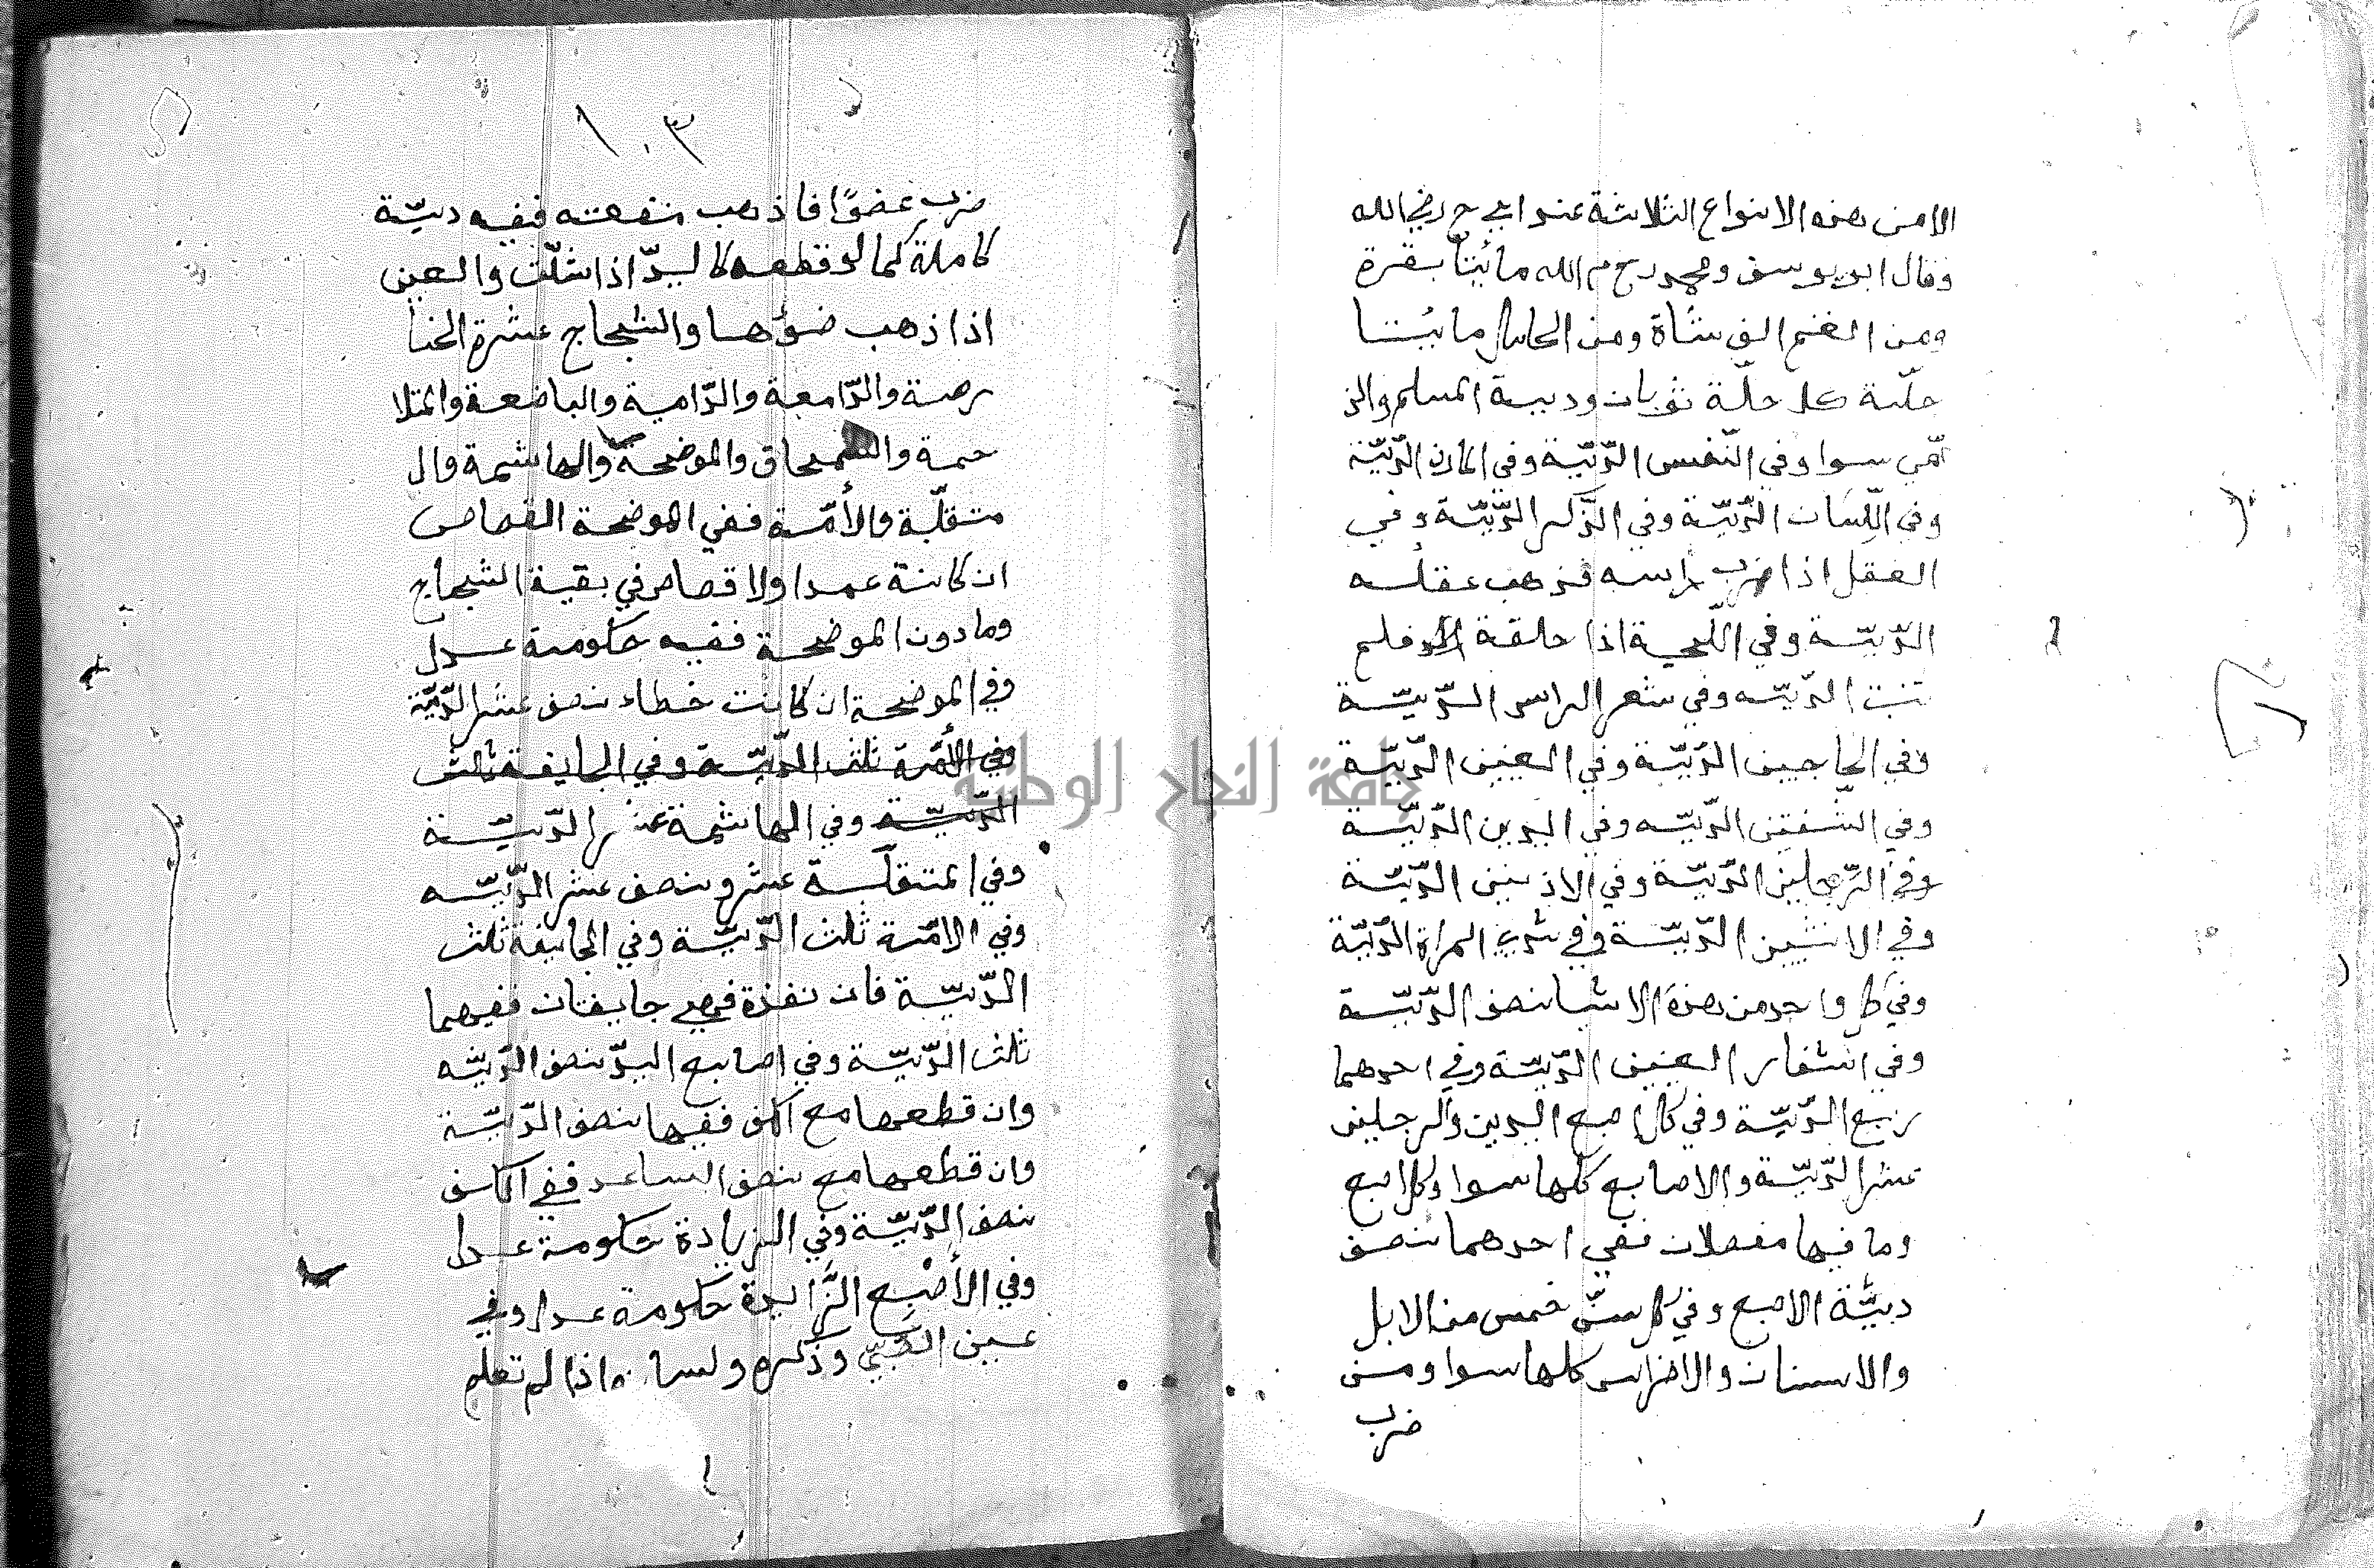 الامن هذه الانواع الثلاثة عند ابي ح رضي الله
وقال ابو يوسف ومحمد رحم الله مائيتا بقرة
ومن الغنم الف شاة ومن الحلل مائيتا
حلّة كل حلّة ثوبان ودية المسلم والذ
مّي سوا وفي النّفس الدّيّة وفي المارن الدّيّة
وفي اللّسان الدّيّة وفي الذّكر الدّيّة وفي
العقل اذا ضرب راسه فذهب عقله
الدّيّة وفي اللّحية اذا حلقة فلم
تنبت الدّيّه وفي شعر الراس الدّيّة
وفي الحاجبين الدّيّة وفي العينين الدّيّة
وفي الشّفتين الدّيّه وفي اليدين الدّيّة
وفي الرّجلين الدّيّة وفي الاذنين الدّيّة
وفي الانثيين الدّيّة وفي ثدي المراة الدّيّة
وفي كل واحد من هذه الاشيا نصف الدّيّة
وفي اشفار العينين الدّيّة وفي احدهما
ربع الدّيّة وفي كل اصبع اليدين والرجلين
عشر الدّيّة والاصابع كلها سوا وكل اصبع
وما فيها مفصلان نفي احدهما نصف
ديّة الاصبع وفي كل سنّ خمس من الابل
والاسنان والاضراس كلها سوا ومن
ضرب
١٠٣
ضرب عضوًا فاذهب منفعته ففيه ديّة
كاملة كما لو قطعه كاليدّ اذا شلّت والعين
اذا ذهب ضؤها والشجاج عشرة الخا
رصة والدّامعة والدّامية والباضعة والمتلا
حمة والسمحاق والموضحة والهاشمة وال
منقلّة والأمّة ففي الموضحة القصاص
ان كانة عمدا ولا قصاص في بقية الشجاج
وما دون الموضحة ففيه حكومة عدل
وفي الموضحة ان كانت خطاء نصف عشر الدّيّة
وفي الأمّة ثلث الدّيّة وفي الجايفة ثلث
الدّيّة وفي الهاشمة عشر الدّيّة
وفي المنقلّة عشر ونصف عشر الدّيّه
وفي الامّة ثلث الدّيّة وفي الجائيفة ثلث
الدّيّة فان نفذة فهي جايفتان ففيهما
ثلث الدّيّة وفي اصابع اليدّ نصف الدّيّه
وان قطعها مع الكف ففيها نصف الدّيّة
وان قطعها مع نصف الساعد ففي الكف
نصف الدّيّة وفي الزيادة حكومة عدل
وفي الأصبع الزّايدة حكومة عدل وفي
عين الصّبيّ وذكره ولسانه اذا لم تعلم
جامعة النجاح الوطنية